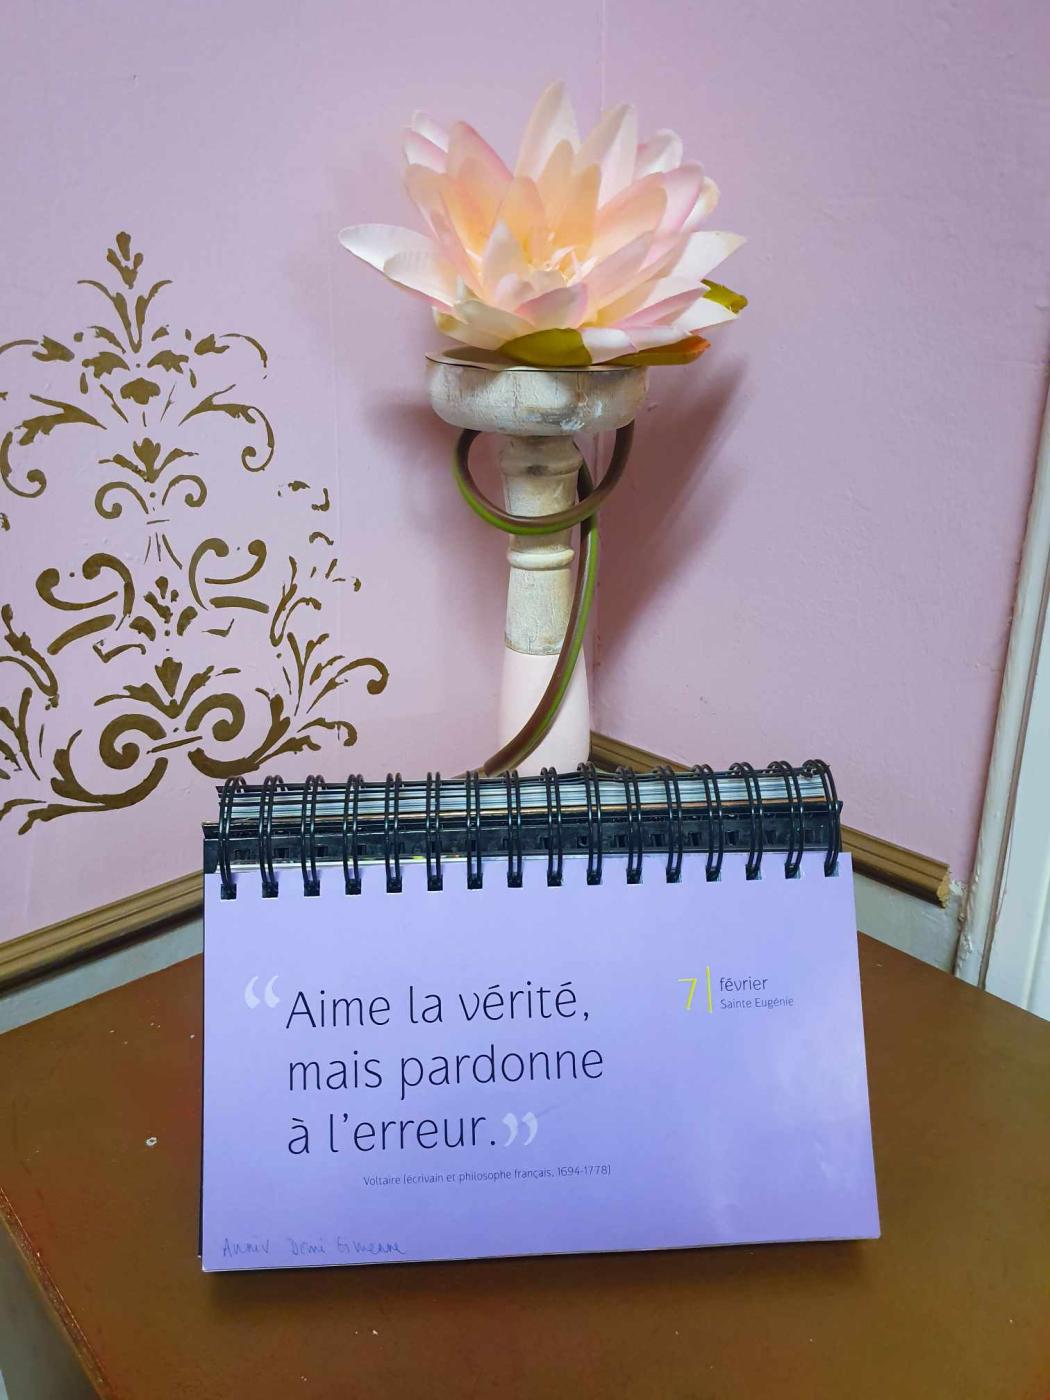 “Aime la vérité,
mais pardonne
à l'erreur.”
Voltaire (écrivain et philosophe français, 1694-1778)
7 février
Sainte Eugénie
Anniv